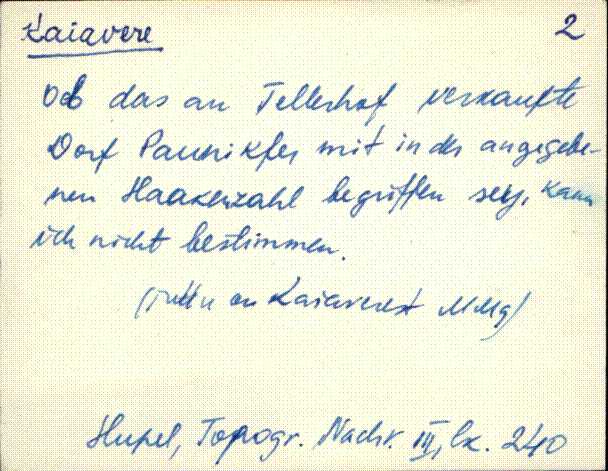 Kaiavere 2
Ob das an Tellerhof verkaufte
Dorf Paunikfer mit in der angegebe-
nen Haakenzahl begriffen sey, kann
ich nicht bestimmen.
(Jutt on Kaiaverest MMg)
Hupel, Topogr. Nachr. III, lk. 240